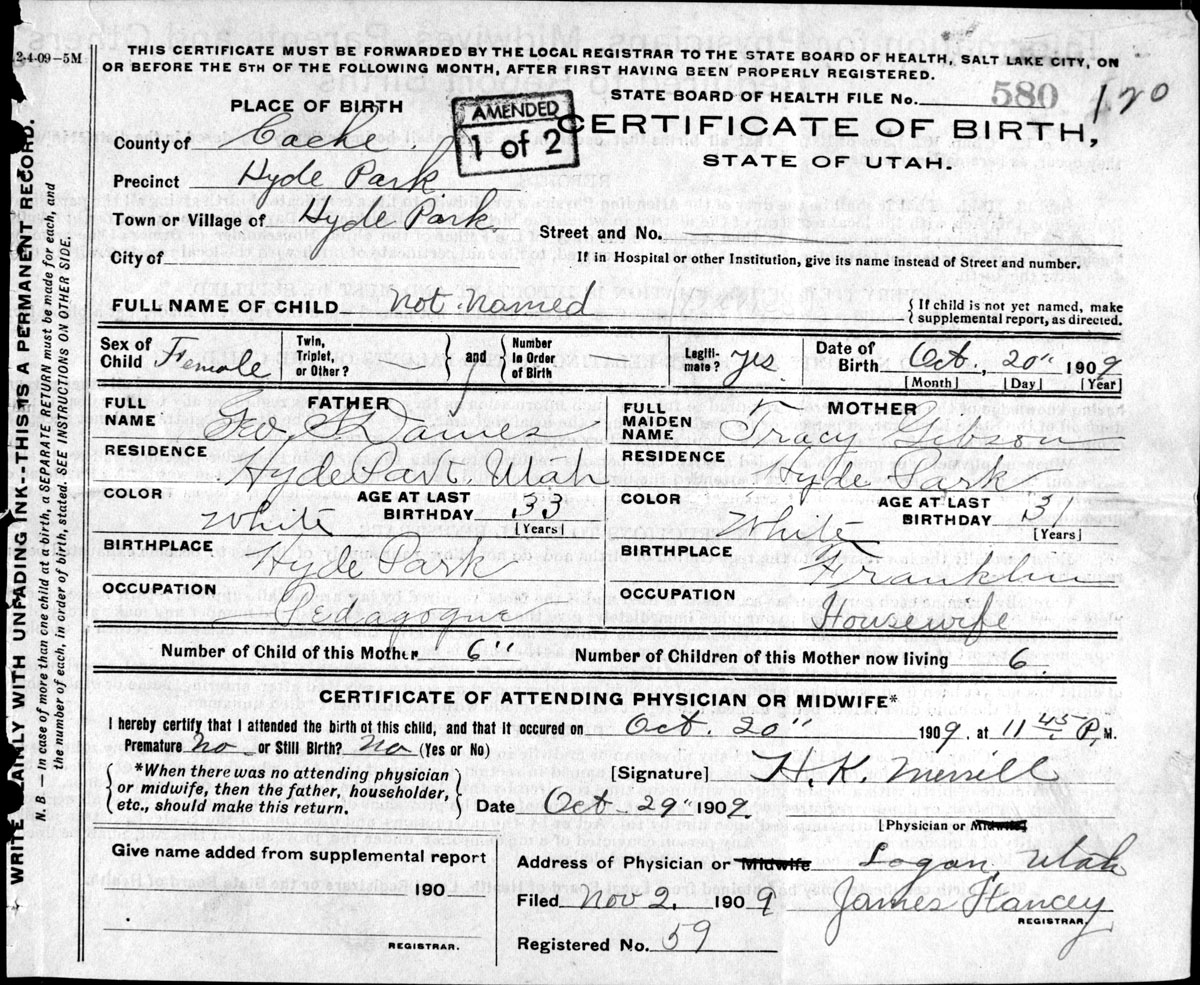 2-4-09-5M
THIS CERTIFICATE MUST BE FORWARDED BY THE LOCAL REGISTRAR TO THE STATE BOARD OF HEALTH, SALT LAKE CITY, ON
OR BEFORE THE 5TH OF THE FOLLOWING MONTH, AFTER FIRST HAVING BEEN PROPERLY REGISTERED.
STATE BOARD OF HEALTH FILE No. 580 120
PLACE OF BIRTH
AMENDED
1 of 2
CERTIFICATE OF BIRTH,
STATE OF UTAH.
County of Cache
Precinct Hyde Park
Town or Village of Hyde Park
Street and No.
City of
If in Hospital or other Institution, give its name instead of Street and number.
FULL NAME OF CHILD not named
{If child is not yet named, make
supplemental report, as directed.
Sex of Child Female
Twin, Triplet, or Other?
and
Number in Order of Birth
Legitimate? yes
Date of Birth Oct., 20" 1909
[Month] [Day] [Year]
FATHER
FULL NAME Geo. Daines
RESIDENCE Hyde Park Utah
COLOR White
AGE AT LAST BIRTHDAY 33 [Years]
BIRTHPLACE Hyde Park
OCCUPATION Pedagogue
MOTHER
FULL MAIDEN NAME Tracy Gibson
RESIDENCE Hyde Park
COLOR White
AGE AT LAST BIRTHDAY 31 [Years]
BIRTHPLACE Franklin
OCCUPATION Housewife
Number of Child of this Mother 6"
Number of Children of this Mother now living 6
CERTIFICATE OF ATTENDING PHYSICIAN OR MIDWIFE*
I hereby certify that I attended the birth of this child, and that it occured on Oct. 20" 1909, at 11 45 P. M.
Premature no or Still Birth? no (Yes or No)
{*When there was no attending physician
or midwife, then the father, householder,
etc., should make this return.}
[Signature] H. K. Merrill
Date Oct. 29" 1909.
[Physician or Midwife]
Give name added from supplemental report
190
REGISTRAR.
Address of Physician or Midwife Logan, Utah
Filed Nov 2, 1909
James Hancey
REGISTRAR.
Registered No. 59
WRITE PLAINLY WITH UNFADING INK--THIS IS A PERMANENT RECORD.
N. B. — In case of more than one child at a birth, a SEPARATE RETURN must be made for each, and
the number of each, in order of birth, stated. SEE INSTRUCTIONS ON OTHER SIDE.